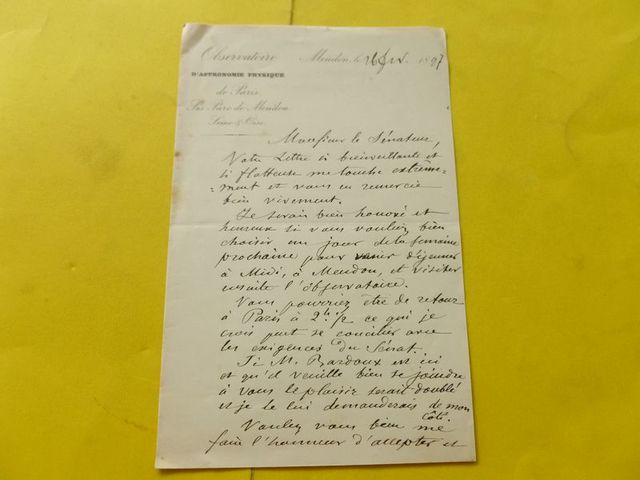 Observatoire
D'ASTRONOMIE PHYSIQUE
de Paris
Sis Parc de Meudon
Seine & Oise
Meudon, le 26 1897
Monsieur le Sénateur,
Votre Lettre si bienveillante et
si flatteuse me touche extrême-
-ment et vous en remercie
bien vivement.
Je serais bien honoré et
heureux si vous vouliez bien
choisir un jour de la semaine
prochaine pour venir déjeuner
à Midi, à Meudon, et visiter
ensuite l'Observatoire.
Vous pourriez être de retour
à Paris à 2h 1/2 ce que je
crois peut se concilier avec
les exigences du Sénat.
Si M. Bardoux est ici
et qu'il veuille bien se joindre
à vous le plaisir serait doublé
et je le lui demanderais de mon
côté.
Veuillez vous bien me
faire l'honneur d'accepter et